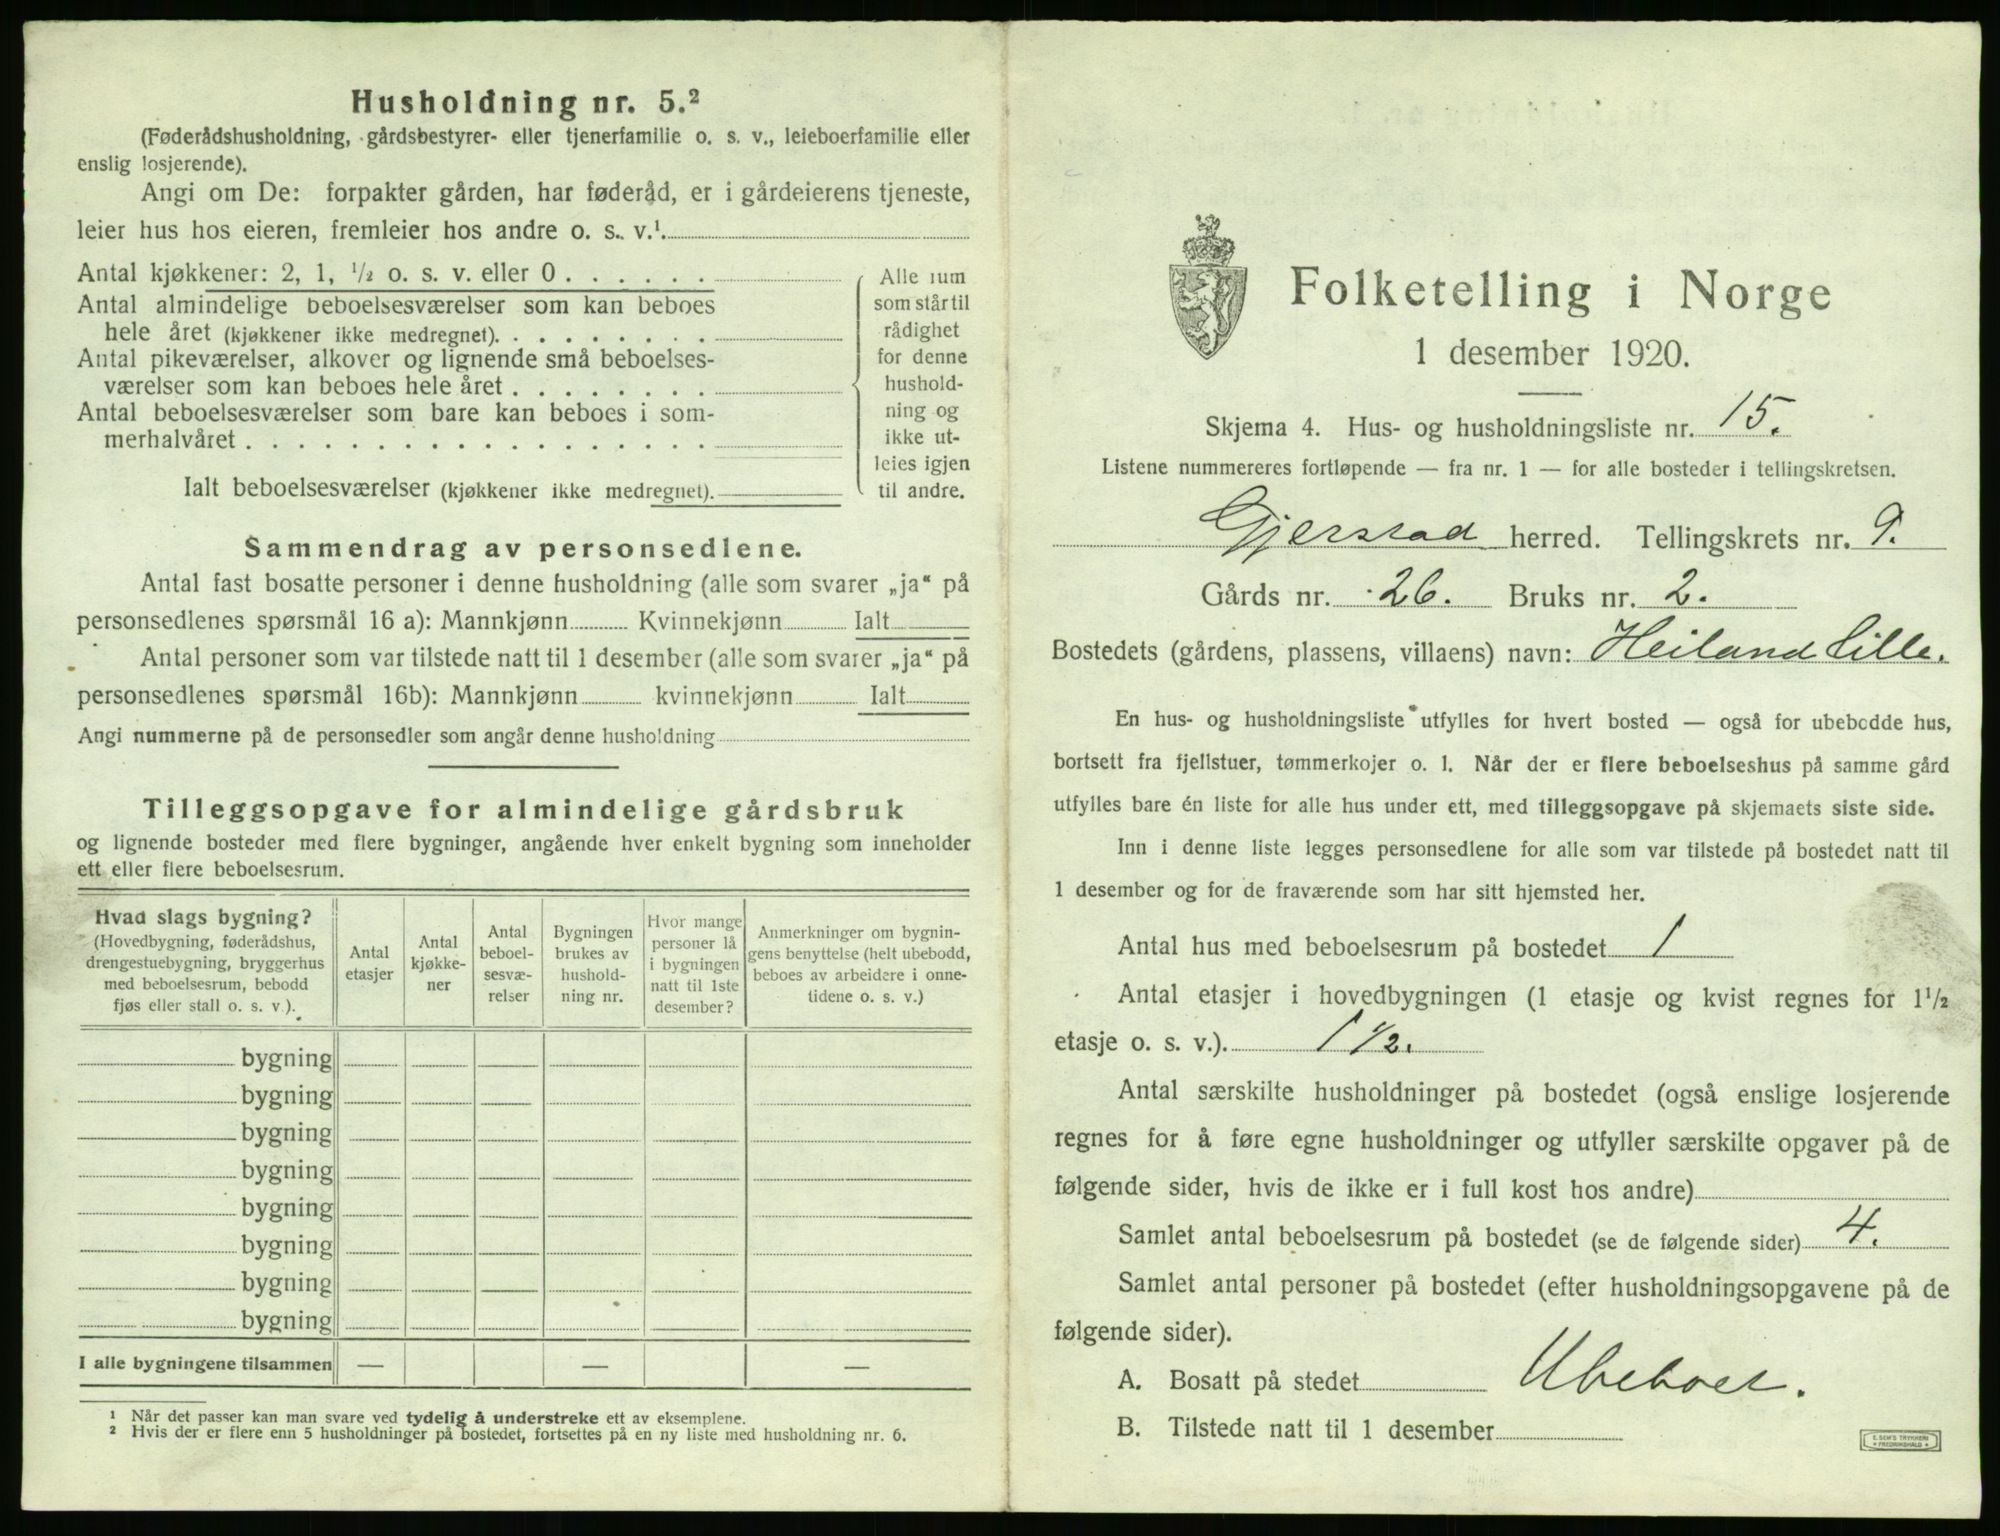 Husholdning nr. 5.²
(Føderådshusholdning, gårdsbestyrer- eller tjenerfamilie o. s. v., leieboerfamilie eller
enslig losjerende).
Angi om De: forpakter gården, har føderåd, er i gårdeierens tjeneste,
leier hus hos eieren, fremleier hos andre o. s. v.¹
Antal kjøkkener: 2, 1, ½ o. s. v. eller 0 . . . . . .
Antal almindelige beboelsesværelser som kan beboes
hele året (kjøkkener ikke medregnet). . . . . . . . .
Antal pikeværelser, alkover og lignende små beboelses-
værelser som kan beboes hele året . . . . . . . .
Antal beboelsesværelser som bare kan beboes i som-
merhalvåret . . . . . . . . . . . . . . . . . .
Ialt beboelsesværelser (kjøkkener ikke medregnet).
Alle rum
som står til
rådighet
for denne
hushold-
ning og
ikke ut-
leies igjen
til andre.
Sammendrag av personsedlene.
Antal fast bosatte personer i denne husholdning (alle som svarer „ja“ på
personsedlenes spørsmål 16 a): Mannkjønn Kvinnekjønn Ialt
Antal personer som var tilstede natt til 1 desember (alle som svarer „ja“ på
personsedlenes spørsmål 16b): Mannkjønn kvinnekjønn Ialt
Angi nummerne på de personsedler som angår denne husholdning
Tilleggsopgave for almindelige gårdsbruk
og lignende bosteder med flere bygninger, angående hver enkelt bygning som inneholder
ett eller flere beboelsesrum.
Hvad slags bygning?
(Hovedbygning, føderådshus,
drengestuebygning, bryggerhus
med beboelsesrum, bebodd
fjøs eller stall o. s. v.).
Antal
etasjer
Antal
kjøkke-
ner
Antal
beboel-
sesvæ-
relser
Bygningen
brukes av
hushold-
ning nr.
Hvor mange
personer lå
i bygningen
natt til 1ste
desember?
Anmerkninger om bygnin-
gens benyttelse (helt ubebodd,
beboes av arbeidere i onne-
tidene o. s. v.)
bygning
bygning
bygning
bygning
bygning
bygning
bygning
bygning
I alle bygningene tilsammen — — —
¹ Når det passer kan man svare ved tydelig å understreke ett av eksemplene.
² Hvis der er flere enn 5 husholdninger på bostedet, fortsettes på en ny liste med husholdning nr. 6.
Folketelling i Norge
1 desember 1920.
Skjema 4. Hus- og husholdningsliste nr. 15.
Listene nummereres fortløpende — fra nr. 1 — for alle bosteder i tellingskretsen.
Gjerstad herred. Tellingskrets nr. 9.
Gårds nr. 26. Bruks nr. 2.
Bostedets (gårdens, plassens, villaens) navn: Heiland lille.
En hus- og husholdningsliste utfylles for hvert bosted — også for ubebodde hus,
bortsett fra fjellstuer, tømmerkojer o. l. Når der er flere beboelseshus på samme gård
utfylles bare én liste for alle hus under ett, med tilleggsopgave på skjemaets siste side.
Inn i denne liste legges personsedlene for alle som var tilstede på bostedet natt til
1 desember og for de fraværende som har sitt hjemsted her.
Antal hus med beboelsesrum på bostedet 1
Antal etasjer i hovedbygningen (1 etasje og kvist regnes for 1½
etasje o. s. v.). 1 ½.
Antal særskilte husholdninger på bostedet (også enslige losjerende
regnes for å føre egne husholdninger og utfyller særskilte opgaver på de
følgende sider, hvis de ikke er i full kost hos andre)
Samlet antal beboelsesrum på bostedet (se de følgende sider) 4.
Samlet antal personer på bostedet (efter husholdningsopgavene på de
følgende sider).
A. Bosatt på stedet Ubeboet.
B. Tilstede natt til 1 desember
E. SEM'S TRYKKERI
FREDRIKSHALD